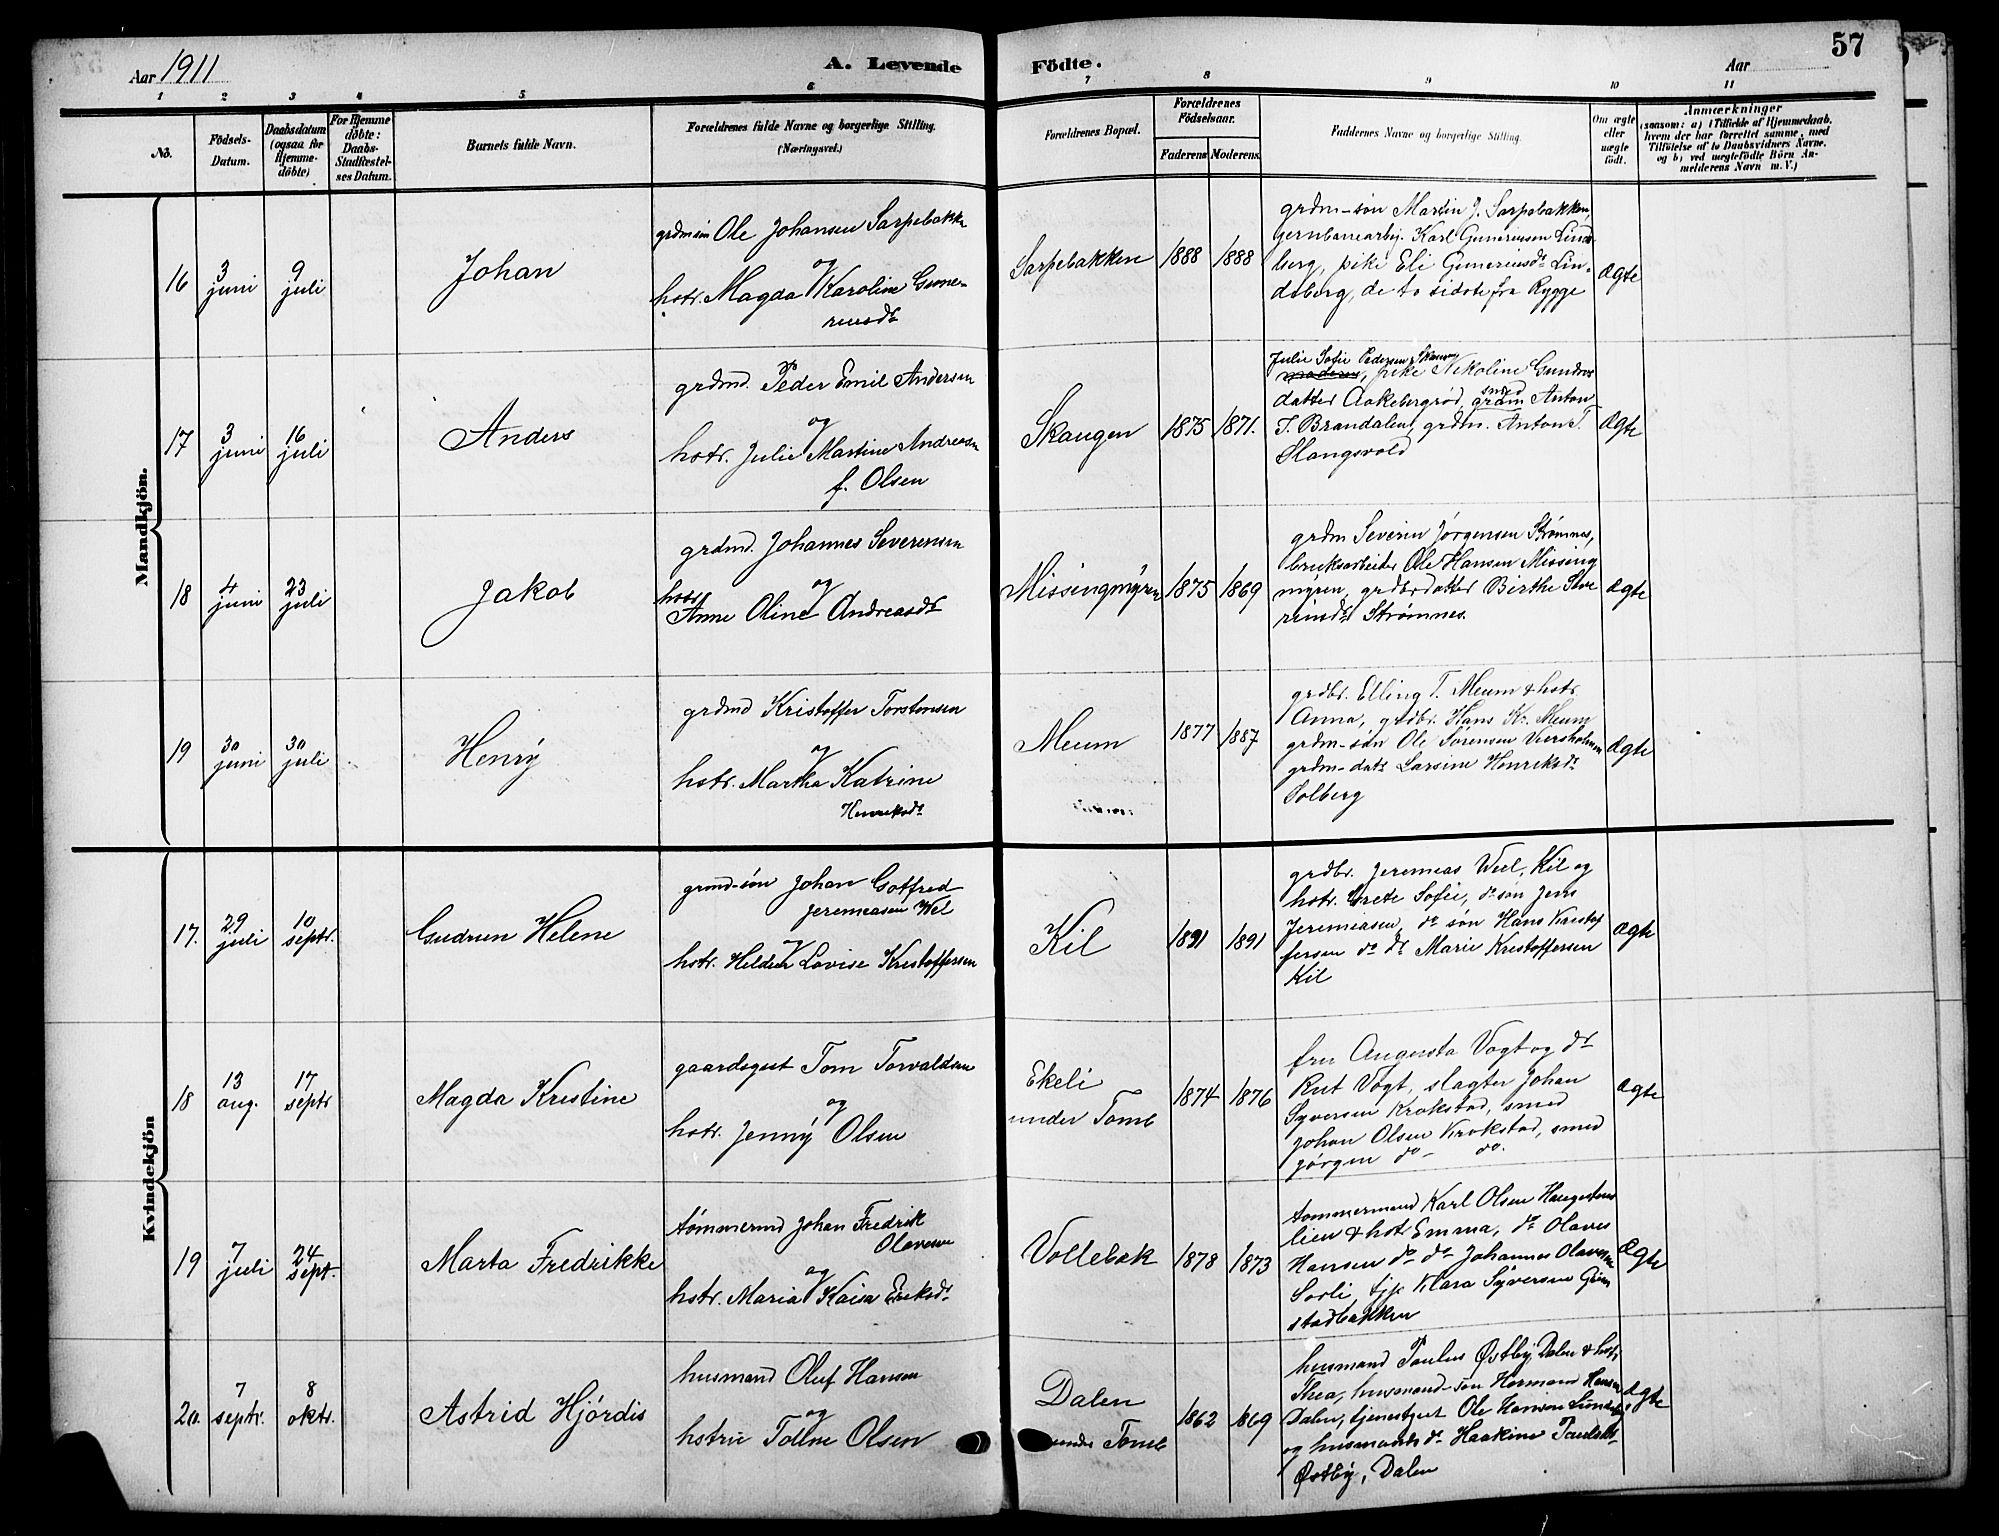 57
Aar 1911
A. Levende
Födte.
Aar
1 2 3 4 5 6 7 8 9 10 11
No.
Födsels-
Datum.
Daabsdatum
(ogsaa for
Hjemme-
döbte)
For Hjemme
döbte:
Daabs-
Stadfæstel-
ses Datum.
Barnets fulde Navn.
Forældrenes fulde Navne og borgerlige Stilling.
(Næringsvei.)
Forældrenes Bopæl.
Forældrenes
Födselsaar.
Faderens
Moderens
Faddernes Navne og borgerlige Stilling.
Om ægte
eller
uægte
födt.
Anmærkninger
(saasom: a) i Tilfælde af Hjemmedaab,
hvem der har forrettet samme, med
Tilföielse af to Daabsvidners Navne,
og b) ved uægtefödte Börn An-
melderens Navn m. V.)
Mandkjön.
16
3
juni
9
juli
Johan
grdm søn Ole Johansen Sarpebakke
og
hstr. Magda Karoline Gune-
riusdt
Sarpebakken
1888
1888
grdm-søn Martin J. Sarpebakken,
jernbanearbj. Karl Guneriusen Lind-
berg, pike Eli Guneriusdt Lin-
dberg, de to sidste fra Rygge
Ægte
17
3
juni
16
juli
Anders
grdmd. Peder Emil Andersen
og
hstr. Julie Martine Andreasen
f. Olsen
Skaugen
1875
1871.
Julie Sofie Pedersen Skaugen
, pike Nikoline Gundros
datter Aakebergrød, smed
grdm Anton
T. Brandalen, grdm. Anton T.
Slangsvold
Ægte
18
4
juni
23
juli
Jakob
grdmd. Johannes Severensen
og
hstr
Anne Oline Andreasdt
Missingmyren
1875
1869
grdm Severin Jørgensen Strømnes,
bruksarbeider Ole Hansen Missing
myren, grdbr datter Birthe Seve
rinsdt Strømnes.
Ægte
19
30
juni
30
juli
Henry
grdmd Kristoffer Torstensen
og
hstr. Martha Katrine
Henriksdt
Meum
1877
1887
grdbr. Elling T. Meum & hstr.
Anna, grdbr. Hans Kr. Meum
grdm-søn Ole Sørensen Viersholmen
grdm-datr Larsine Henriksdt
Solberg
Ægte
Kvindekjön
17.
29
juli
10
septr.
Gudrun Helene
grmd-søn Johan Gotfred
Jeremiasen Wel
og
hstr. Helder Lovise Kristoffersen
Kil
1891
1891
grdbr. Jeremias Weel, Kil og
hstr. Grete Sofie, do søn Jens
Jeremiasen, do søn Hans Kristof
fersen do dt Marie Kristoffersen
Kil
Ægte
18
13
aug.
17
septr
Magda Kristine
gaardsgut Tom Torvaldsen
og
hstr. Jenny Olsen
Ekeli
under Tomb
1874
1876
fru Augusta Vogt og dt
Rut Vogt, slagter Johan
Syversen Krokstad, smed
Johan Olsen Krokstad, smed
Jørgen do - do.
Ægte
19
7
juli
24
sept.
Marta Fredrikke
tømmermd Johan Fredrik
Olavesen
og
hstr. Maria Kaisa Eriksdt
Vollebæk
1878
1873
tømmermand Karl Olsen Haugesten
lien & hst Emma, do Olaves
Hansen do do Johannes Olavesen
Sorli, tjp Klara Syversen Grim
stadbakken
Ægte
20.
7
septr.
8
oktr.
Astrid Hjördis
husmand Oluf Hansen
og
hstru Tolline Olsen
Dalen
under Tomb
1862
1869
husmand Paulus Østby, Dalen & hst.
Thea, husmand-søn Hermand Hansen
Dalen, tjenestgut Ole Hansen Lundeby,
og husmands dt Haakine Paulsdt
Østby, Dalen
Ægte